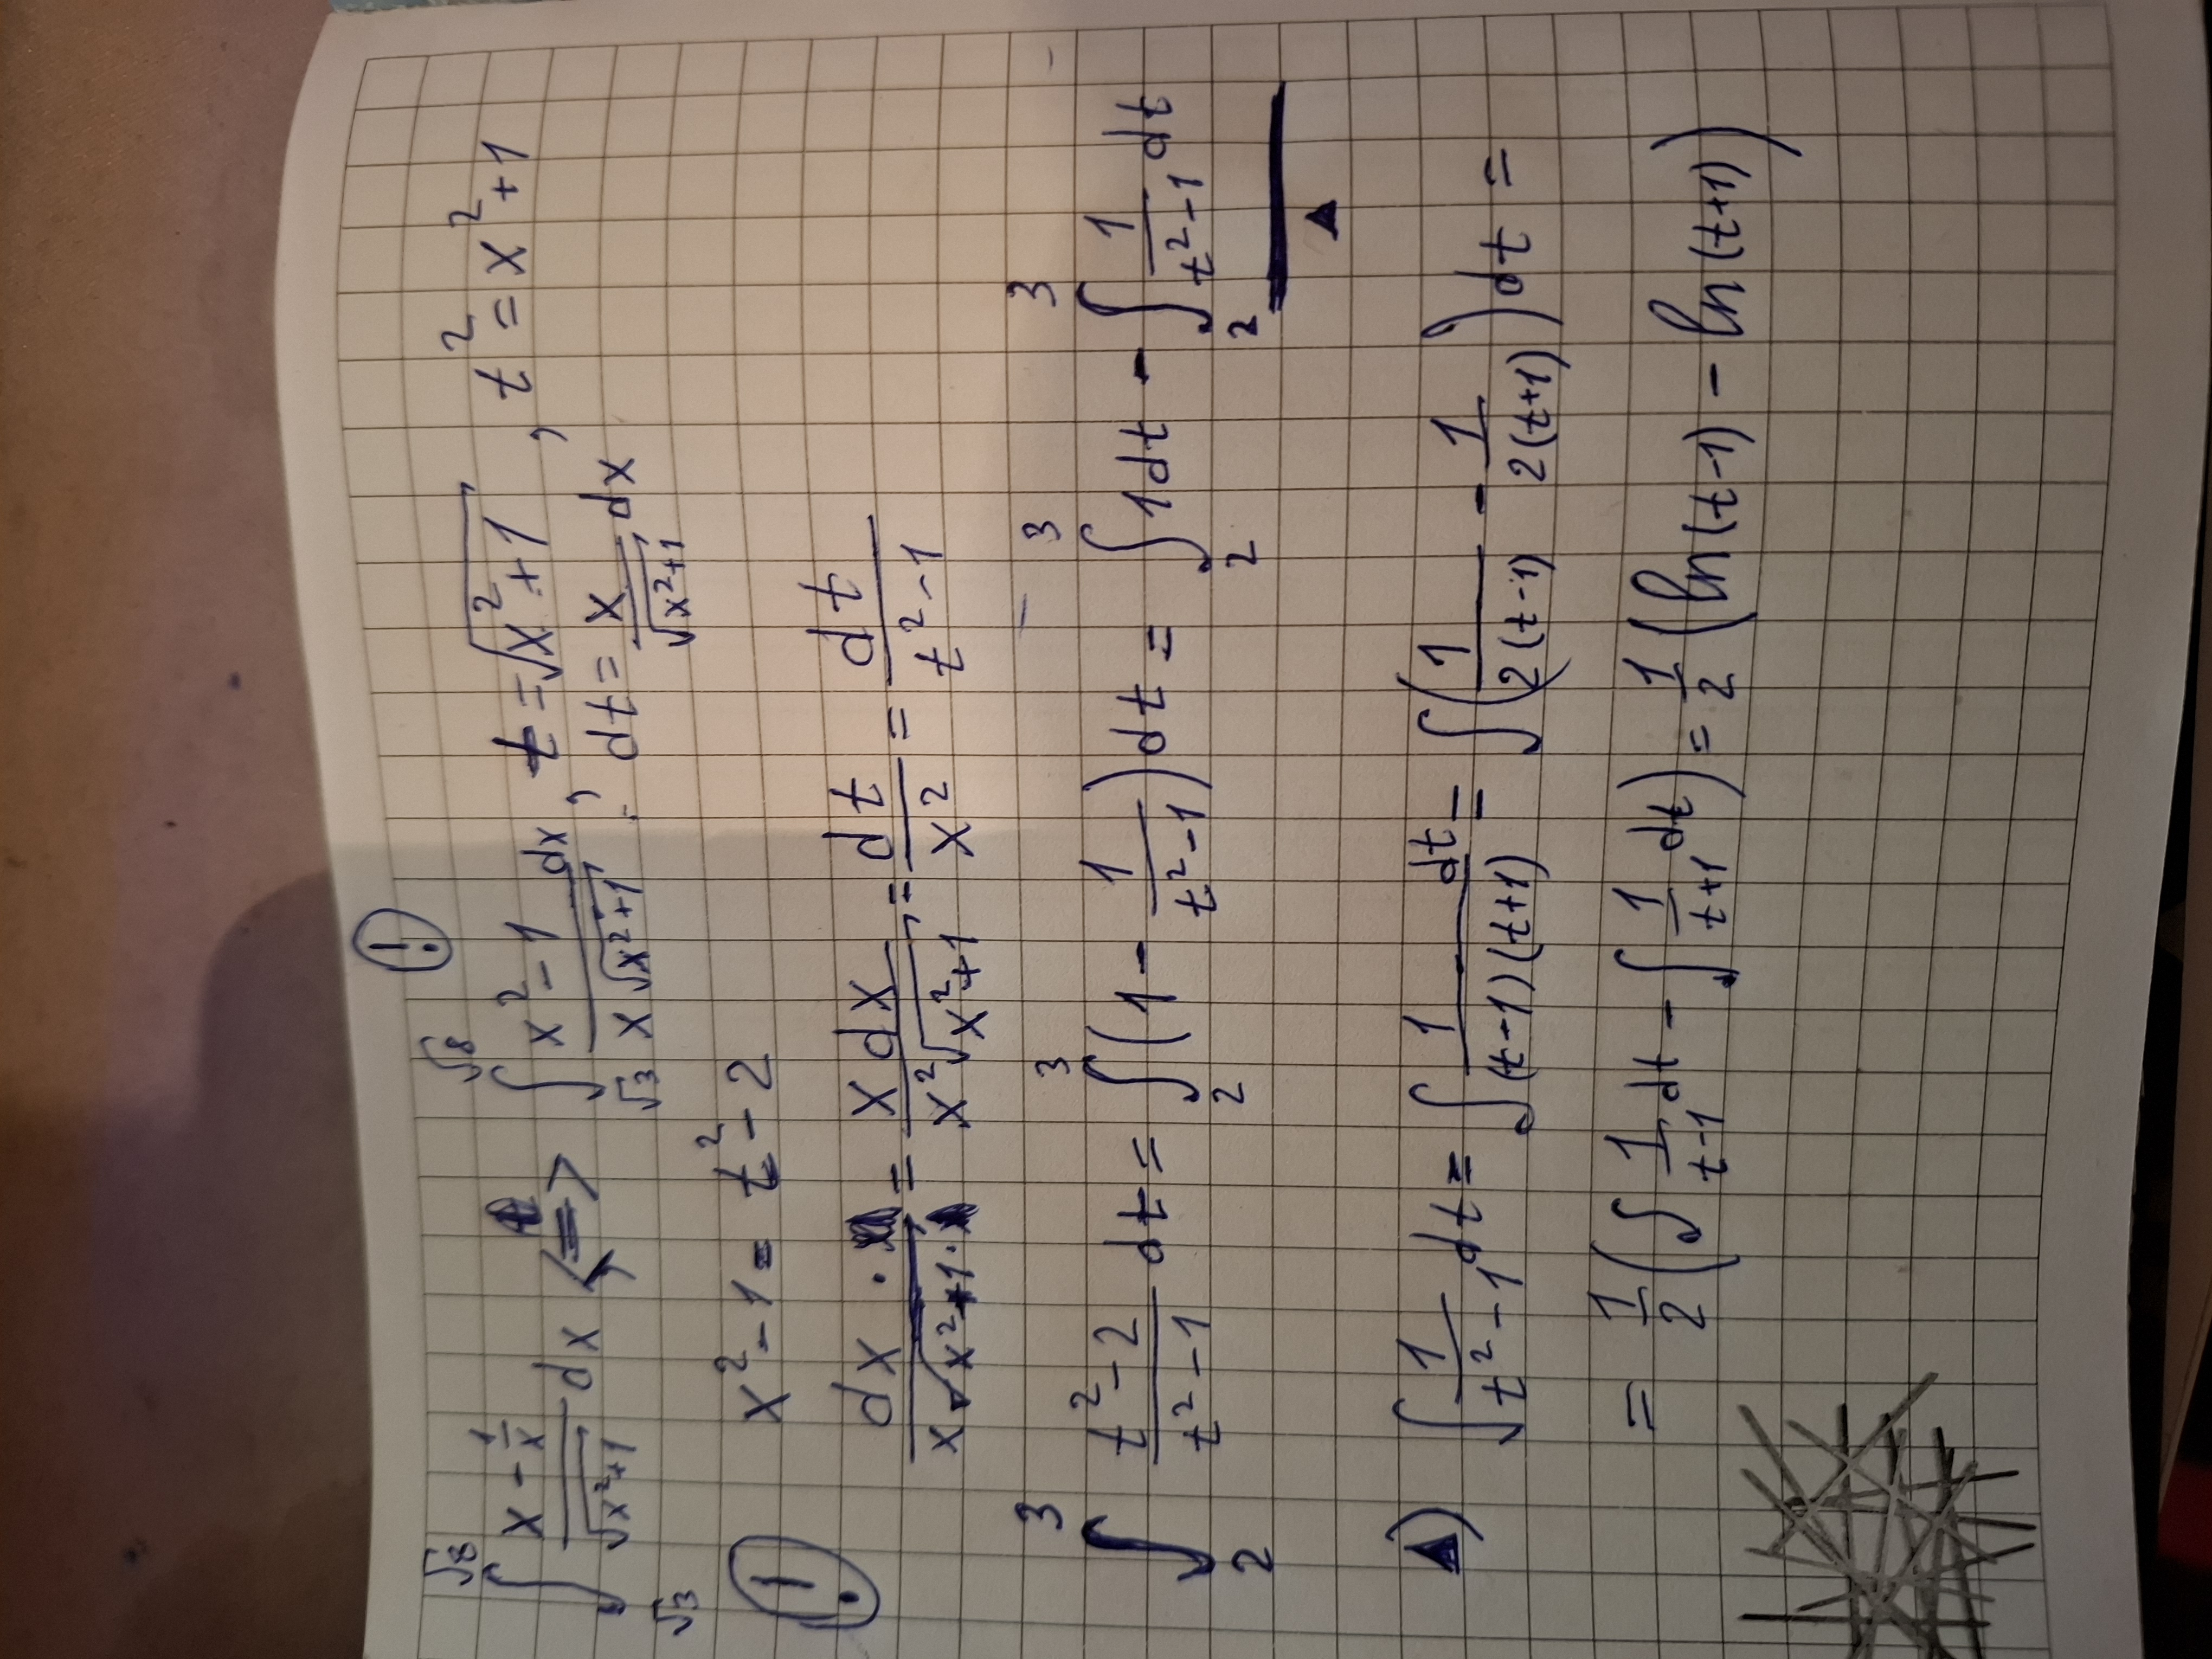 !
∫_{√3}^{√8} (x - 1/x)/√(x²+1) dx <=> ∫_{√3}^{√8} (x² - 1)/(x√(x²+1)) dx, t = √(x²+1), t² = x²+1
dt = x/√(x²+1) dx
! x² - 1 = t² - 2
dx/(x√(x²+1)) = x dx/(x²√(x²+1)) = dt/x² = dt/(t² - 1)
∫_{2}^{3} (t² - 2)/(t² - 1) dt = ∫_{2}^{3} (1 - 1/(t² - 1)) dt = ∫_{2}^{3} 1 dt - ∫_{2}^{3} 1/(t² - 1) dt
▲
▲) ∫ 1/(t² - 1) dt = ∫ 1/((t-1)(t+1)) dt = ∫ (1/(2(t-1)) - 1/(2(t+1))) dt =
= 1/2 (∫ 1/(t-1) dt - ∫ 1/(t+1) dt) = 1/2 (ln(t-1) - ln(t+1))